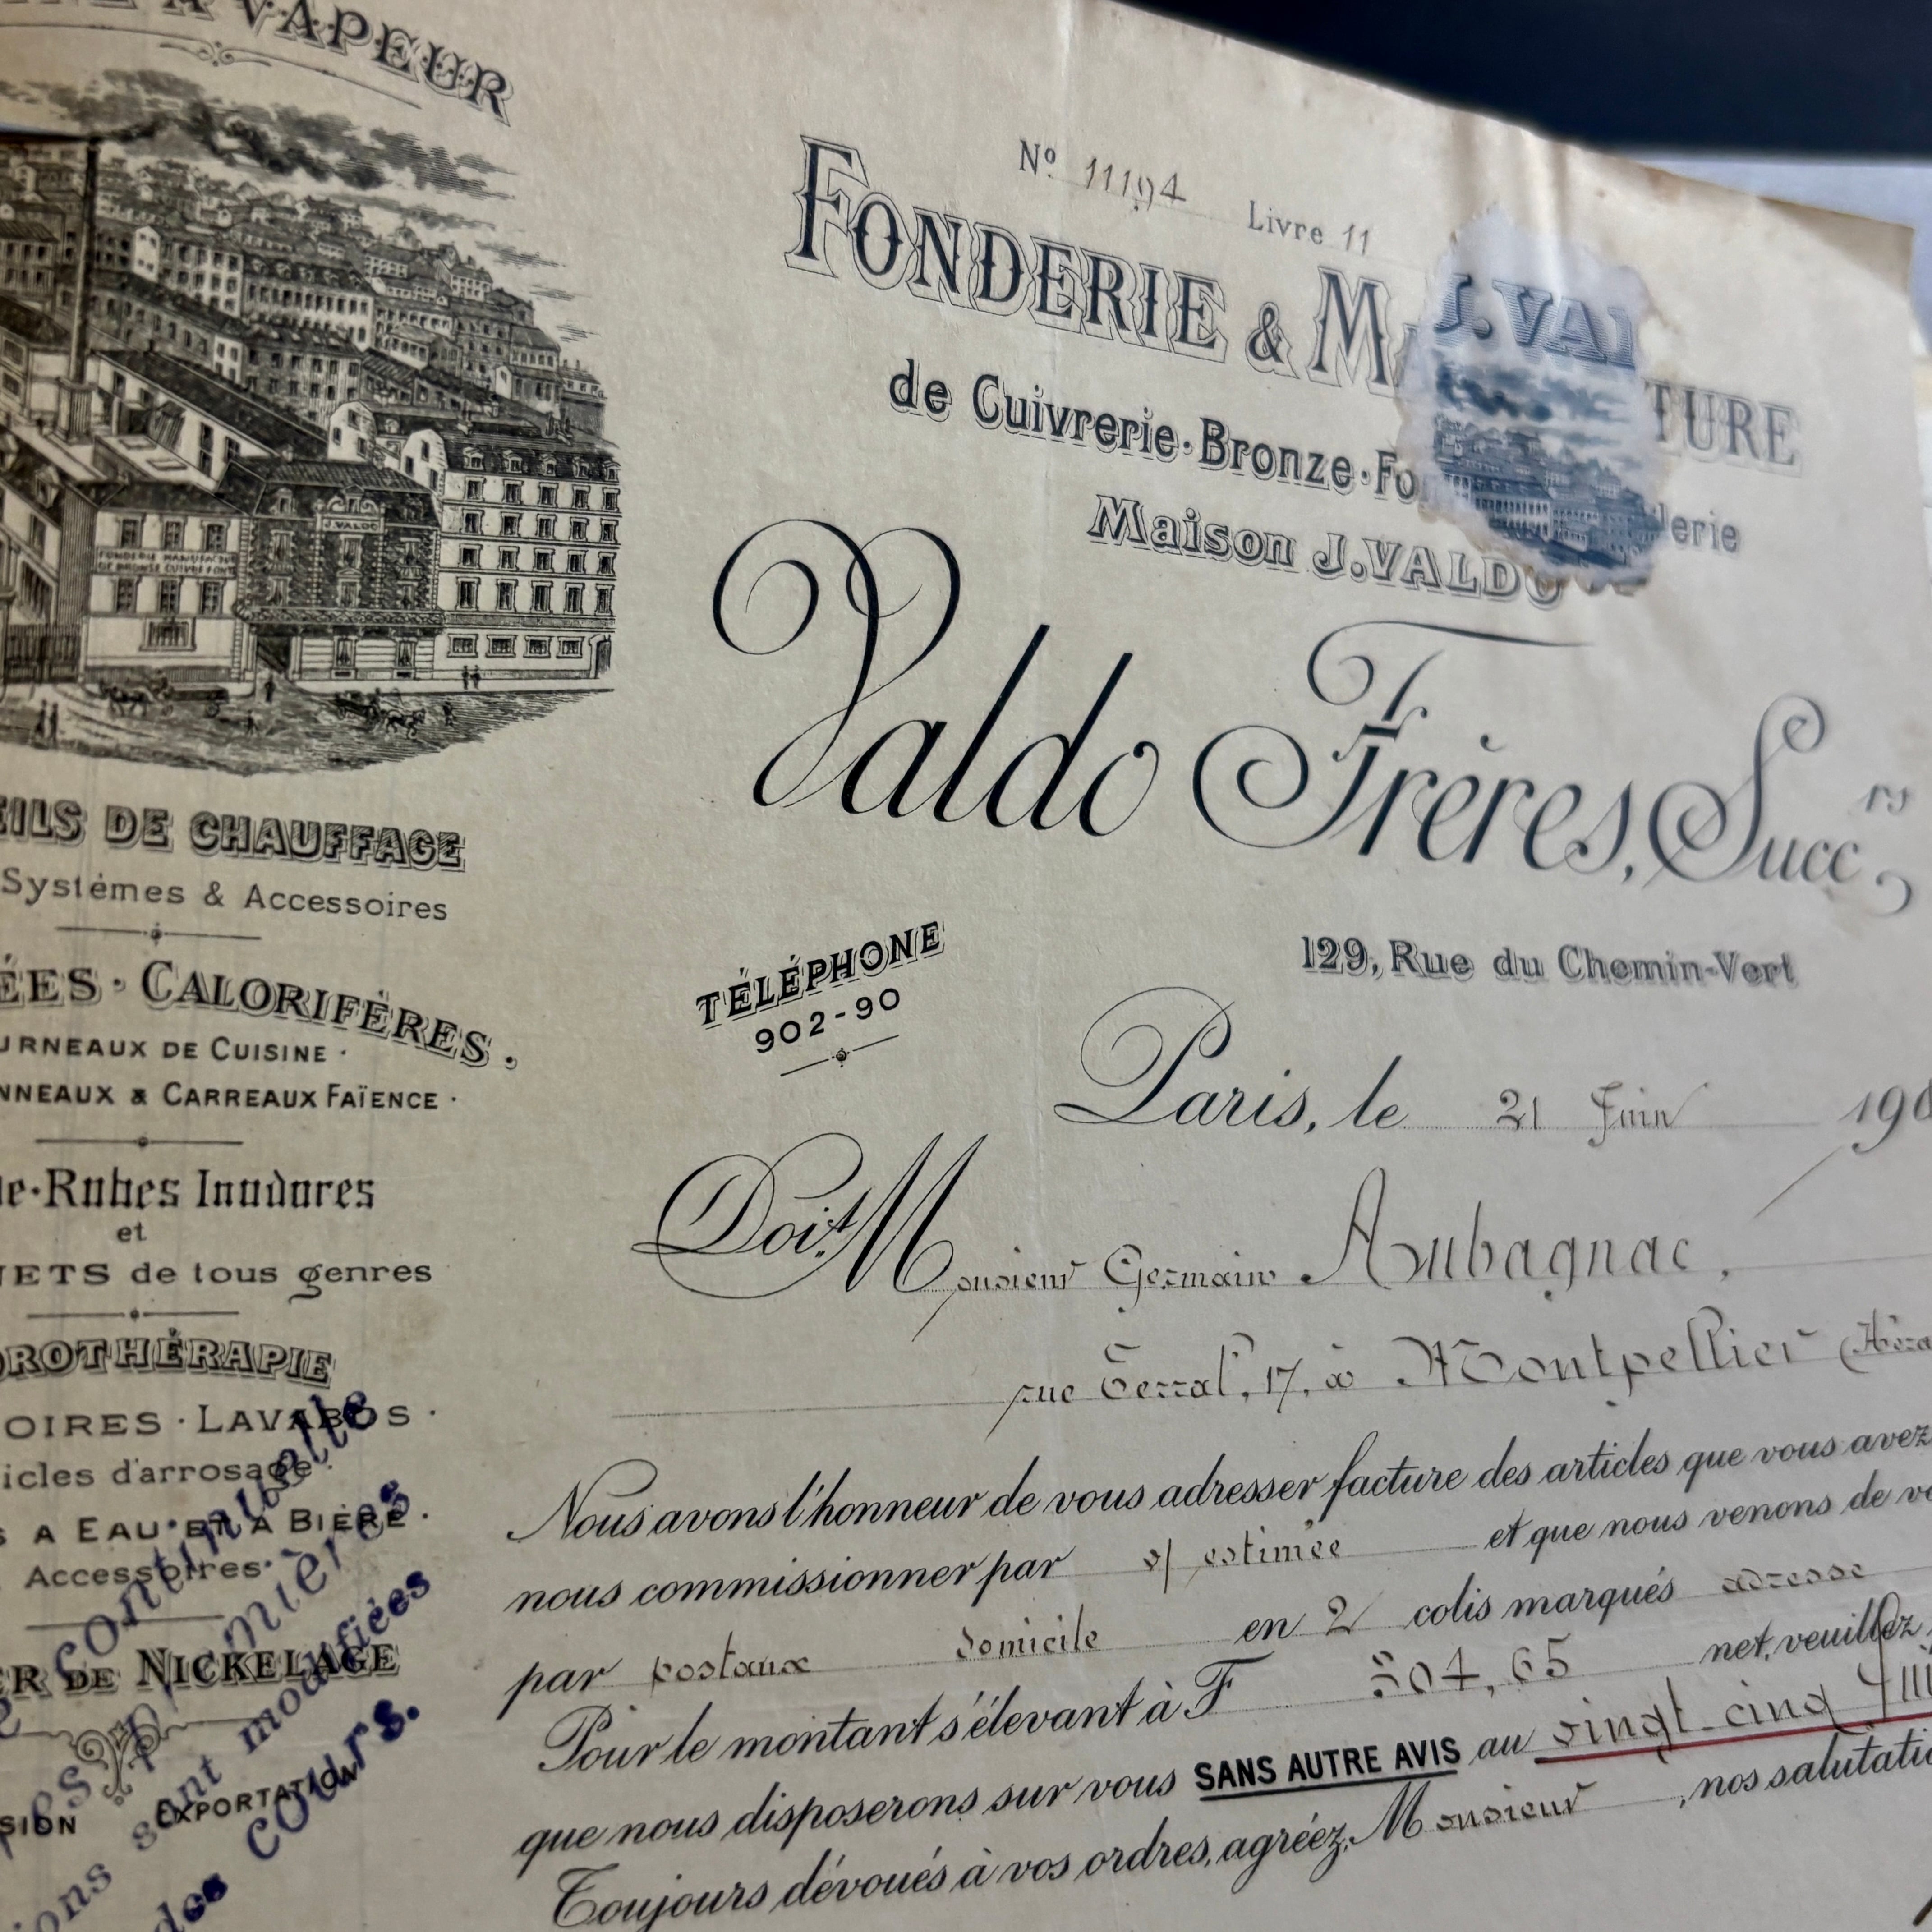 A VAPEUR
J. VALDO
FONDERIE MANUFACTURE
DE BRONZE CUIVRE FONTE
EILS DE CHAUFFAGE
Systèmes & Accessoires
ÉES · CALORIFÈRES.
URNEAUX DE CUISINE ·
NNEAUX & CARREAUX FAÏENCE ·
e-Robes Inodores
et
NETS de tous genres
DROTHÉRAPIE
OIRES · LAVABOS ·
icles d'arrosage ·
S A EAU ET A BIÈRE ·
Accessoires ·
ER DE NICKELAGE
SION EXPORTATION
continuelle
premières
ions sont modifiées
des cours.
Nº 11194 Livre 11
FONDERIE & MA TURE
J. VAL
de Cuivrerie · Bronze · Fo derie
Maison J. VALDO
Valdo Frères, Succrs
129, Rue du Chemin-Vert
TÉLÉPHONE
902-90
Paris, le 21 Juin 190
Doit Monsieur Germain Aubagnac,
rue Terral, 17, à Montpellier (Héra
Nous avons l'honneur de vous adresser facture des articles que vous avez
nous commissionner par v/ estimée et que nous venons de vo
par postaux domicile en 2 colis marqués adresse
Pour le montant s'élevant à F 304,65 net, veuillez
que nous disposerons sur vous SANS AUTRE AVIS au vingt-cinq
Toujours dévoués à vos ordres, agréez, Monsieur, nos salutatio